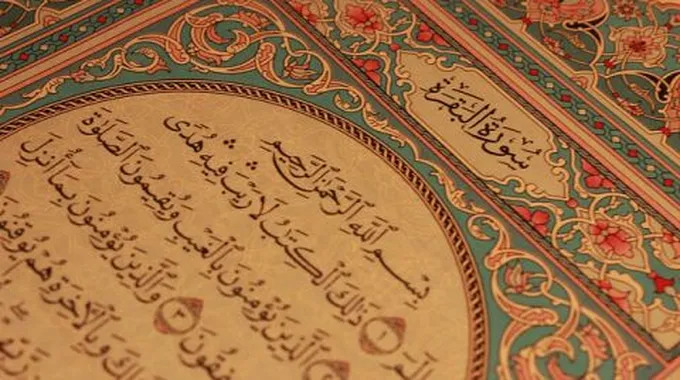 سُورَةُ الْبَقَرَةِ
بِسْمِ اللَّهِ الرَّحْمَٰنِ الرَّحِيمِ
الٓمٓ ١ ذَٰلِكَ ٱلْكِتَٰبُ لَا رَيْبَ فِيهِ هُدًى
ٱلَّذِينَ يُؤْمِنُونَ بِٱلْغَيْبِ وَيُقِيمُونَ ٱلصَّلَوٰةَ
فِقُونَ ٣ وَٱلَّذِينَ يُؤْمِنُونَ بِمَآ أُنزِلَ
لِكَ وَبِٱلْءَاخِرَةِ هُمْ يُوقِنُو